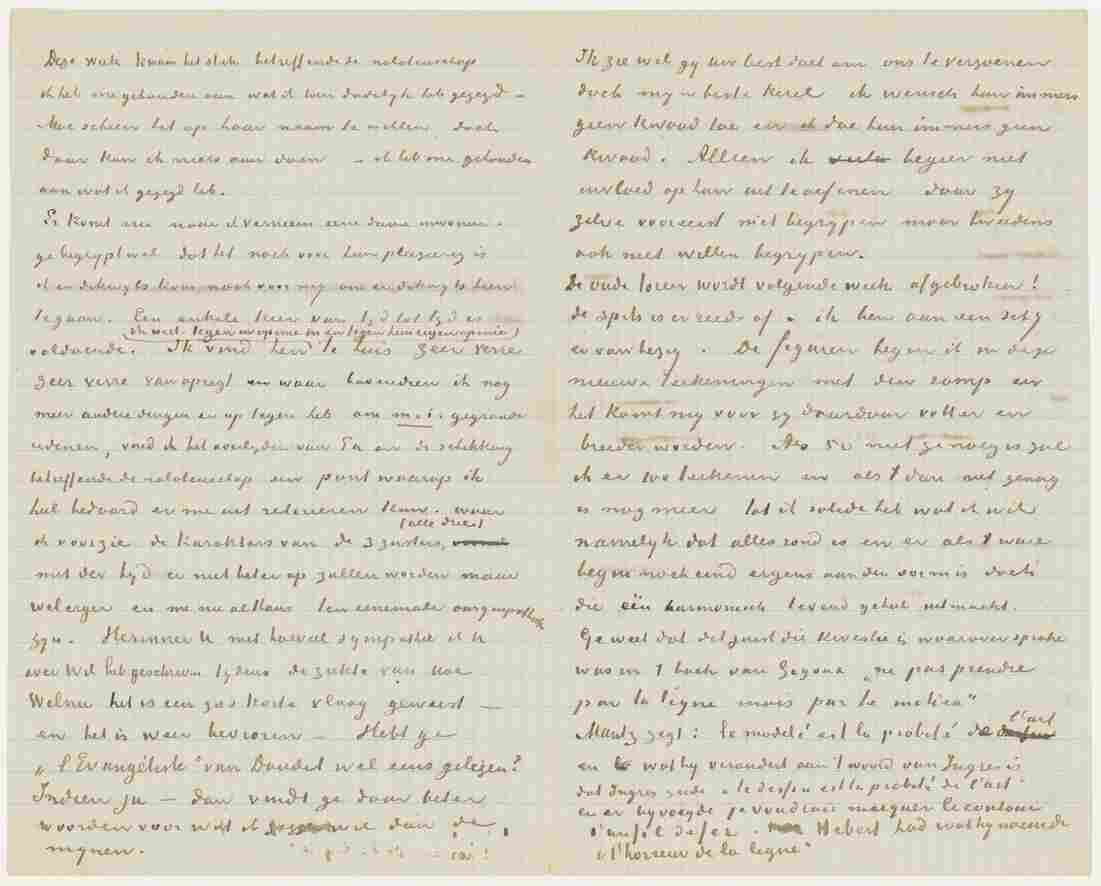 Deze week kwam het stuk betreffende de nalatenschap
ik heb me gehouden aan wat ik toen dadelijk heb gezegd –
Moe scheen het op haar naam te willen doch
daar kan ik niets aan doen – ik heb me gehouden
aan wat ik gezegd heb.
Er komt nu naar ik verneem eene dame inwonen.
ge begrijpt wel dat het noch voor hun plezierig is
noch voor mij om er dikwijls heen
te gaan. Een enkele keer van tijd tot tijd is
(en wel tegen uw opinie in en tegen hun eigen opinie)
voldoende. Ik vond hen t'huis zeer verre
zeer verre van opregt en waar bovendien ik nog
meer andere dingen er op tegen heb om m.i. gegronde
redenen, vond ik het overlijden van Pa en de schikking
betreffende de nalatenschap een punt waarop ik
heel bedaard er me uit retireeren kon. waar
(alle drie)
ik voorzie de karakters van de 3 zusters,
met der tijd er niet beter op zullen worden maar
wel erger en me nu althans ten eenemale
zijn. Herinner U met hoeveel sympathie ik U
over Wil heb geschreven tijdens de ziekte van Moe
Welnu het is een zoo korte vlaag geweest –
en het is weer bevroren – Hebt ge
„l'Evangéliste” van Daudet wel eens gelezen?
Indien ja – dan vindt ge daar beter
woorden voor wat ik dan de
mijnen.
Ik zie wel gij uw best doet om ons te verzoenen
doch mijn beste kerel ik wensch hun immers
geen kwaad toe en ik doe hun immers geen
kwaad. Alleen ik begeer niet
invloed op hun uit te oefenen daar zij
zelve vooreerst niet begrijpen maar tweedens
ook niet willen begrijpen.
De oude toren wordt volgende week afgebroken!
de spits is er reeds af. ik ben aan een schij
er van bezig. De figuren begin ik in deze
nieuwe teekeningen met den romp en
het komt mij voor zij daardoor voller en
breeder worden. Als 50 niet genoeg is zal
ik er 100 teekenen en als t dan niet genoeg
is nog meer tot ik solide heb wat ik wil
namelijk dat alles rond is en er als t ware
begin noch eind ergens aan den vorm is doch
die één harmonisch levend geheel uitmaakt.
Ge weet dat dit juist die kwestie is waarover sprake
was in t boek van Gigoux „ne pas prendre
par la ligne mais par le milieu”
Mantz zegt: le modelé est la probité de l'art
en wat hij verandert aan t woord van Ingres is
dat Ingres zeide „le dessin est la probité de l'art”
en er bijvoegde je voudrais marquer le contour
d'un fil de fer. Hebert had wat hij noemde
„l'horreur de la ligne”